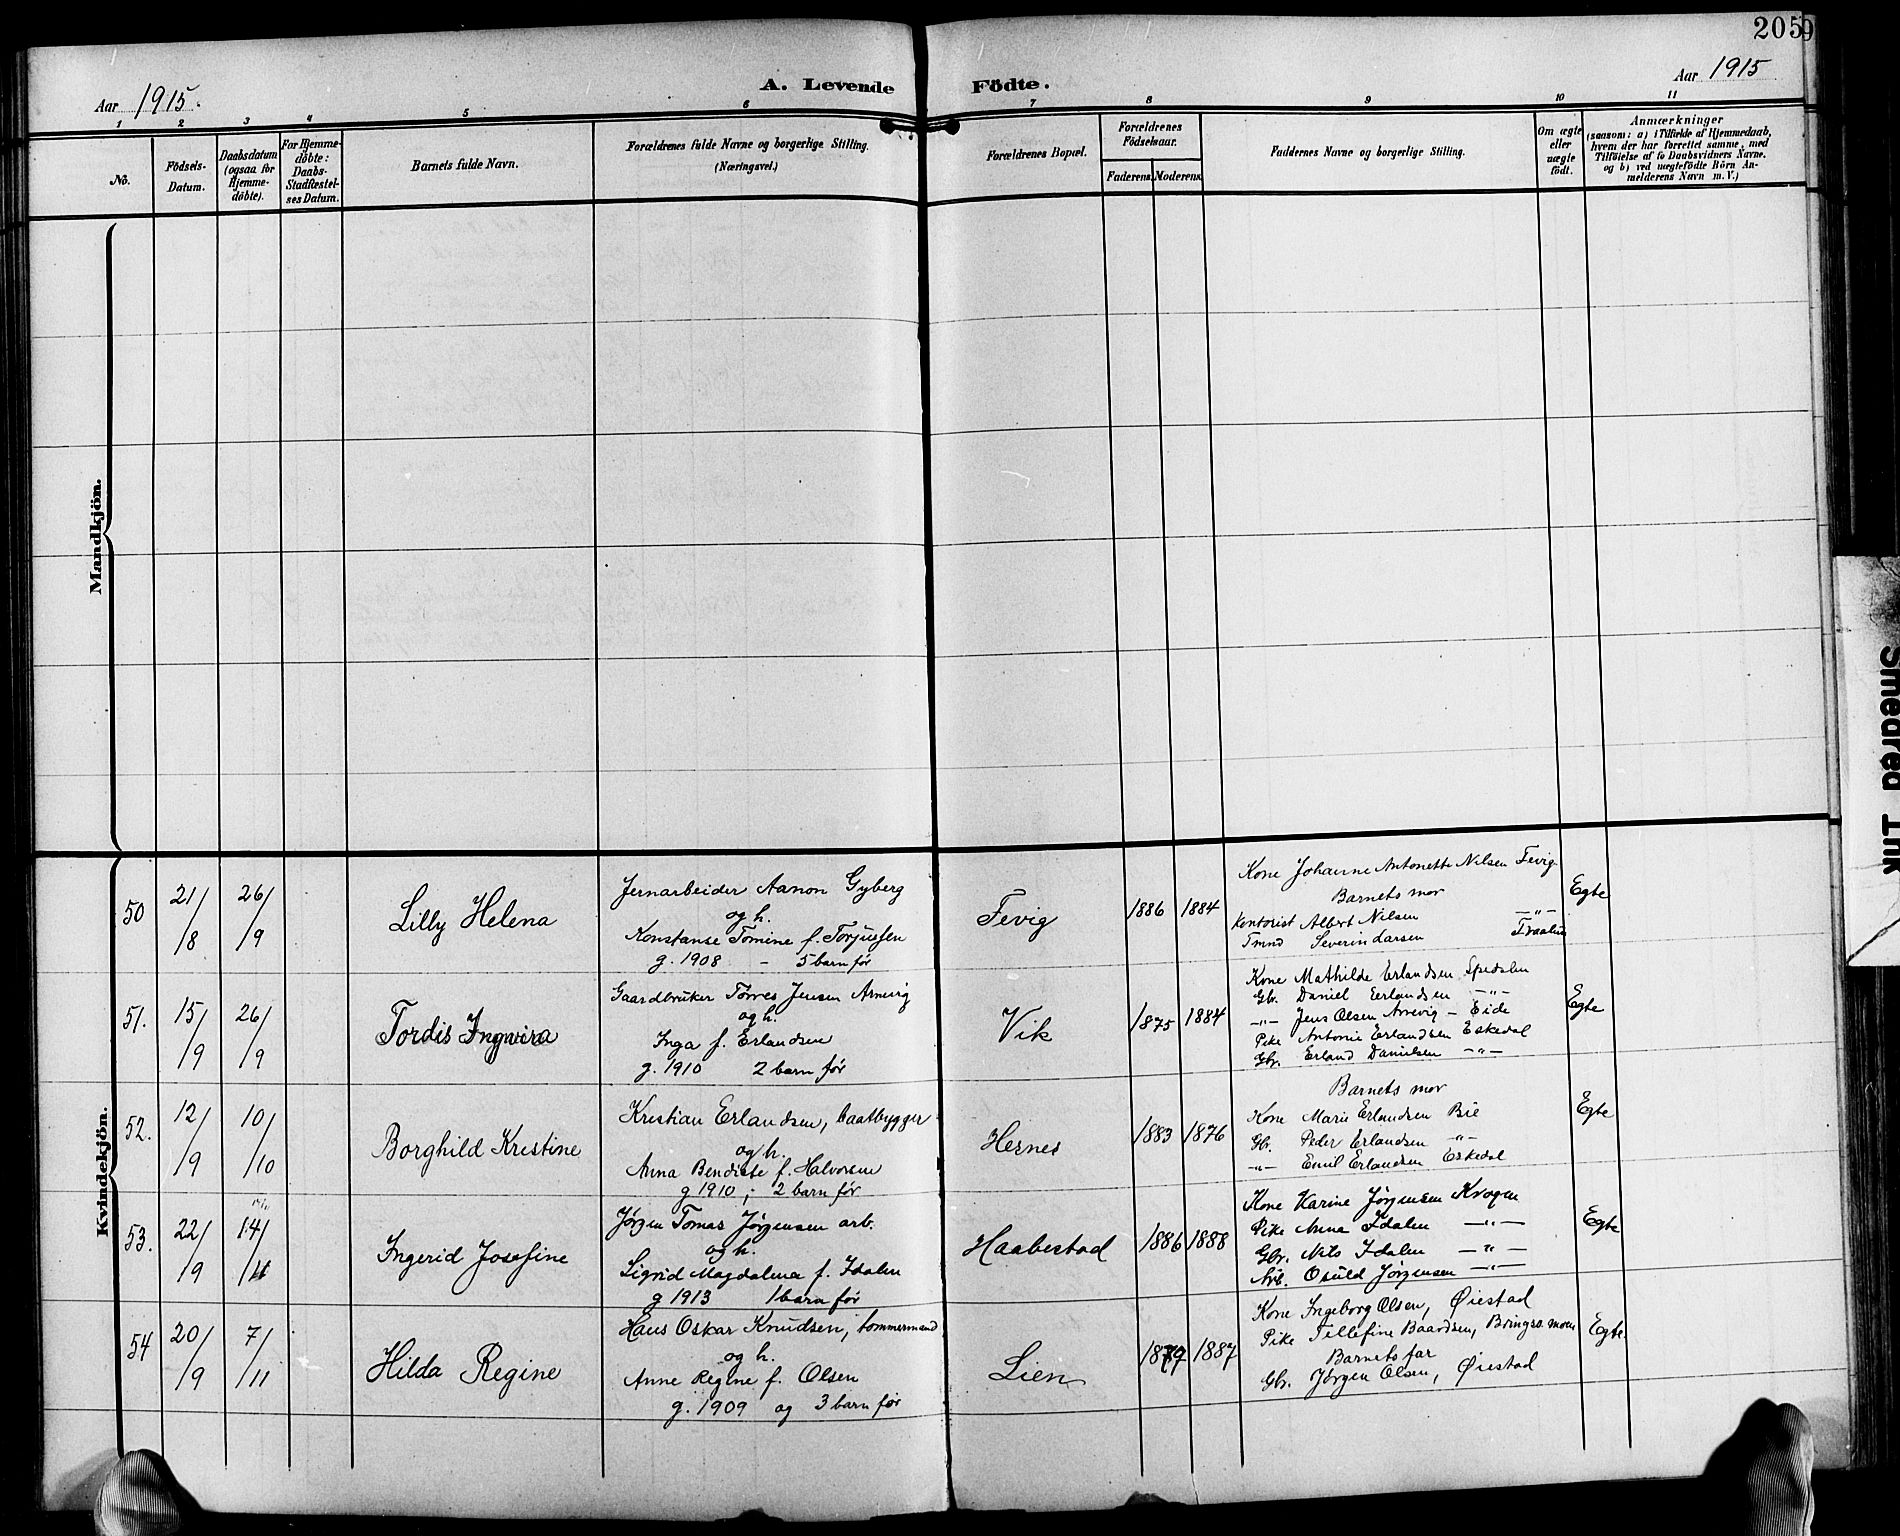 205
Aar 1915.
A. Levende Födte.
Aar 1915
1 2 3 4 5 6 7 8 9 10 11
No.
Födsels-Datum.
Daabsdatum (ogsaa for Hjemme-döbte).
For Hjemme-döbte: Daabs-Stadfæstel-ses Datum.
Barnets fulde Navn.
Forældrenes fulde Navne og borgerlige Stilling. (Næringsvei.)
Forældrenes Bopæl.
Forældrenes Födselsaar.
Faderens. Moderens.
Faddernes Navne og borgerlige Stilling.
Om ægte eller uægte födt.
Anmærkninger
(saasom: a) i Tilfælde af Hjemmedaab, hvem der har forrettet samme, med Tilföielse af to Daabsvidners Navne, og b) ved uægtefödte Börn An-melderens Navn m. V.)
Mandkjön.
Kvindekjön.
50 21/8 26/9 Lilly Helena
Jernarbeider Aanon Gyberg
og h.
Konstanse Tomine f. Torjussen
g. 1908 - 5 barn før
Fevig 1886 1884
Kone Johanne Antonette Nilsen Fevig
Barnets mor
Kontorist Albert Nilsen —"—
Tmnd Severin Larsen
Egte
51. 15/9 26/9 Tordis Ingvira
Gaardbruker Tørres Jensen Arnevig
og h.
Inga f. Erlandsen
g. 1910 2 barn før
Vik 1875 1884
Kone Mathilde Erlandsen Spedalen
Gbr. Daniel Erlandsen —"—
—"— Jens Olsen Arnevig - Eide
Pike Antonie Erlandsen Eskedal
Gbr. Erland Danielsen —"—
Egte
52. 12/9 10/10 Borghild Kristine
Kristian Erlandsen, baatbygger
og h.
Anna Bendicte f. Halvorsen
g 1910; 2 barn før
Hesnes 1883 1876
Barnets mor
Kone Marie Erlandsen Bie
Gbr. Peder Erlandsen —"—
—"— Emil Erlandsen Eskedal
Egte
53. 22/9 14/11 Ingerid Josefine
Jørgen Tomas Jørgensen arb.
og h.
Sigrid Magdalena f. Idalen
g 1913 1 barn før
Haabestad 1886 1888
Kone Karine Jørgensen Krogen
Pike Anna Idalen —"—
Gbr. Nils Idalen —"—
Arb. Osuld Jørgensen —"—
Egte
54 20/9 7/11 Hilda Regine
Hans Oskar Knudsen, tommermand
og h.
Anne Regine f. Olsen
g. 1909 og 3 barn før
Lien 1879 1887
Kone Ingeborg Olsen, Øiestad
Pike Tellefine Baardsen, Bringsv. moen
Barnets far
Gbr. Jørgen Olsen, Øiestad
Egte.
Smeared Ink